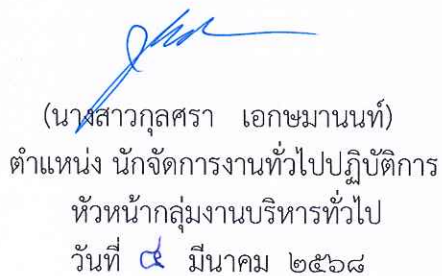 (นางสาวกุลศรา เอกษมานนท์)
ตำแหน่ง นักจัดการงานทั่วไปปฏิบัติการ
หัวหน้ากลุ่มงานบริหารทั่วไป
วันที่ ๔ มีนาคม ๒๕๖๘